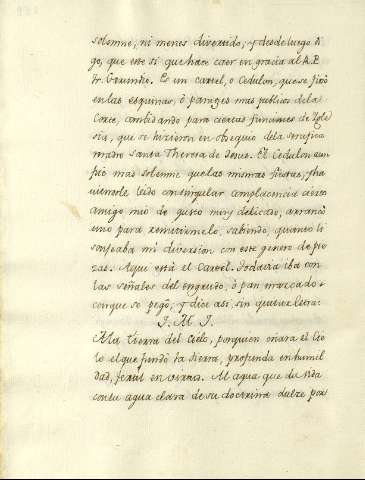 solemne, ni menos divertido, y desde luego di-
go, que este si que hace caer en gracia al A. P.
Fr. Gerundio. Es un cartel, o Cedulon, que se fixó
en las esquinas, ò parages mas publicos de la
Corte, combidando para ciertas funciones de Igle
sia, que se hizieron en obsequio de la serafica
madre Santa Theresa de Jesus. El Cedulon aun
fue mas solemne que las mismas fiestas, y ha
viendole leido con singular complacencia cierto
amigo mio de gusto muy delicado, arrancó
uno para remitirmelo, sabiendo, quanto li
songeaba mi diversion con este genero de pie
zas. Aqui está el Cartel. Todavia iba con
las señales del engrudo, ò pan mazcado
con que se pegó, y dice asi, sin quitar letra:
J. M. J.
A la tierra del Cielo, por quien el Cie
lo el que fundó la tierra, profunda en humil
dad, fertil en virtud. Al agua que da vida
con tu agua clara de su doctrina dulze por